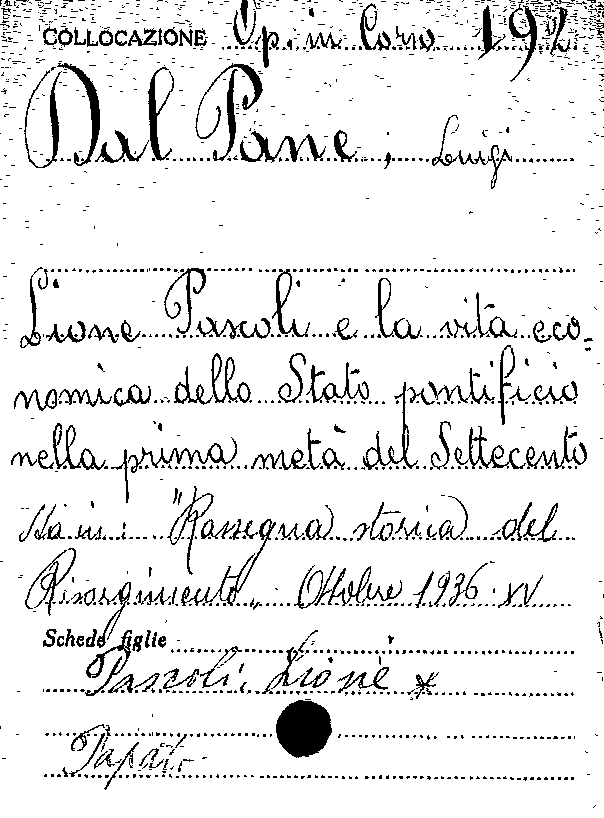 COLLOCAZIONE Op. in Corso
Dal Pane, Luigi
Lione Pascoli e la vita eco=
nomica dello Stato pontificio
nella prima metà del Settecento
Sta in: "Rassegna storica del
Risorgimento„ Ottobre 1936·XV
Schede figlie
Pascoli, Lione *
Papato